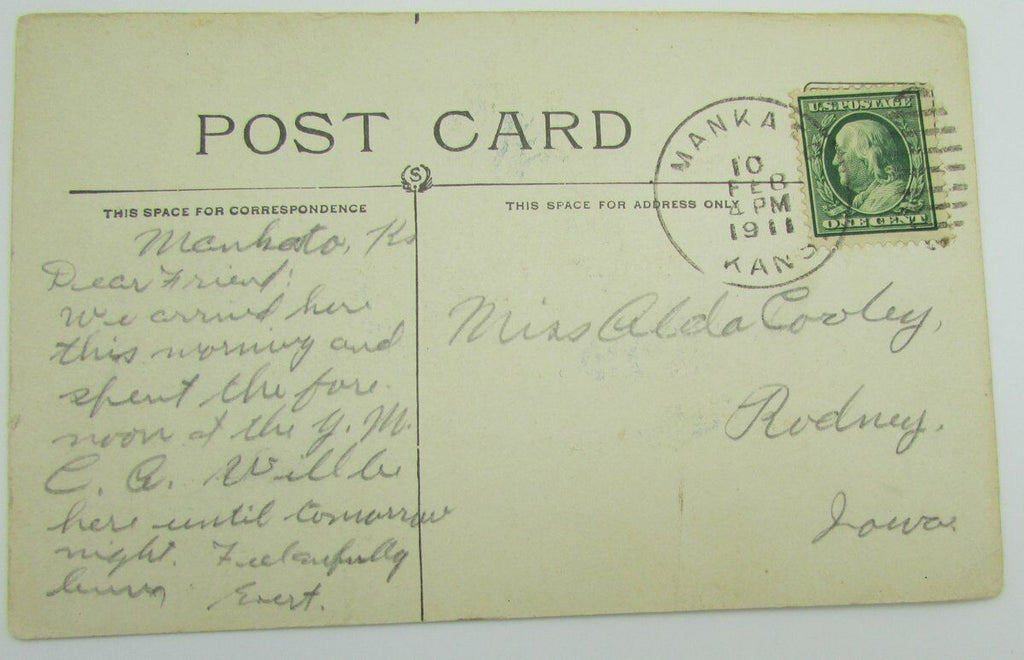 POST CARD
S
THIS SPACE FOR CORRESPONDENCE
THIS SPACE FOR ADDRESS ONLY
MANKA
10
FEB
4 PM
1911
KANS
U.S. POSTAGE
ONE CENT
Mankato, Ks
Dear Friend:
We arrived here
this morning and
spent the fore
noon at the Y. M.
C. A. Will be
here until tomorrow
night. Feel awfully
Evert.
Miss Alda Cooley,
Rodney,
Iowa